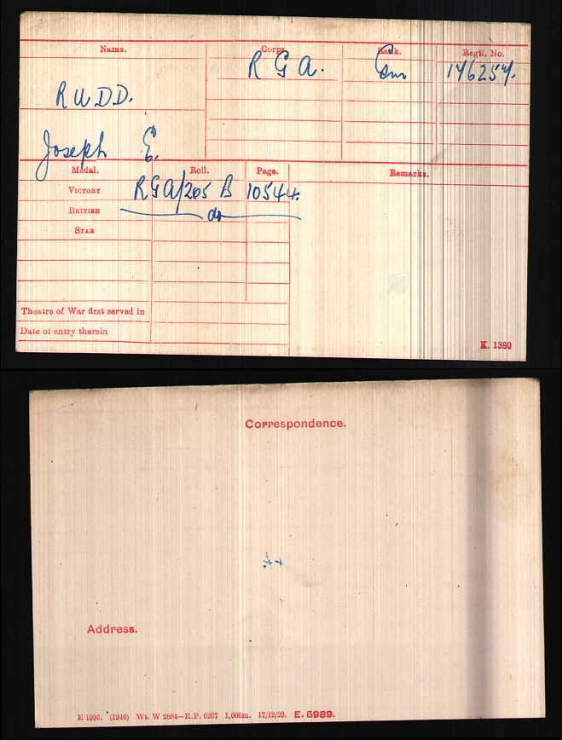 Name. Corps. Rank. Regtl. No.
R G A. Gnr 176257.
RUDD.
Joseph E.
Medal. Roll. Page. Remarks.
VICTORY RGA/205 B 10544.
BRITISH do
STAR
Theatre of War first served in
Date of entry therein
K. 1380
Correspondence.
Address.
E 1995. (1246) Wt. W 2884—R.P. 6267 1,000m. 17/12/20. E. 6989.